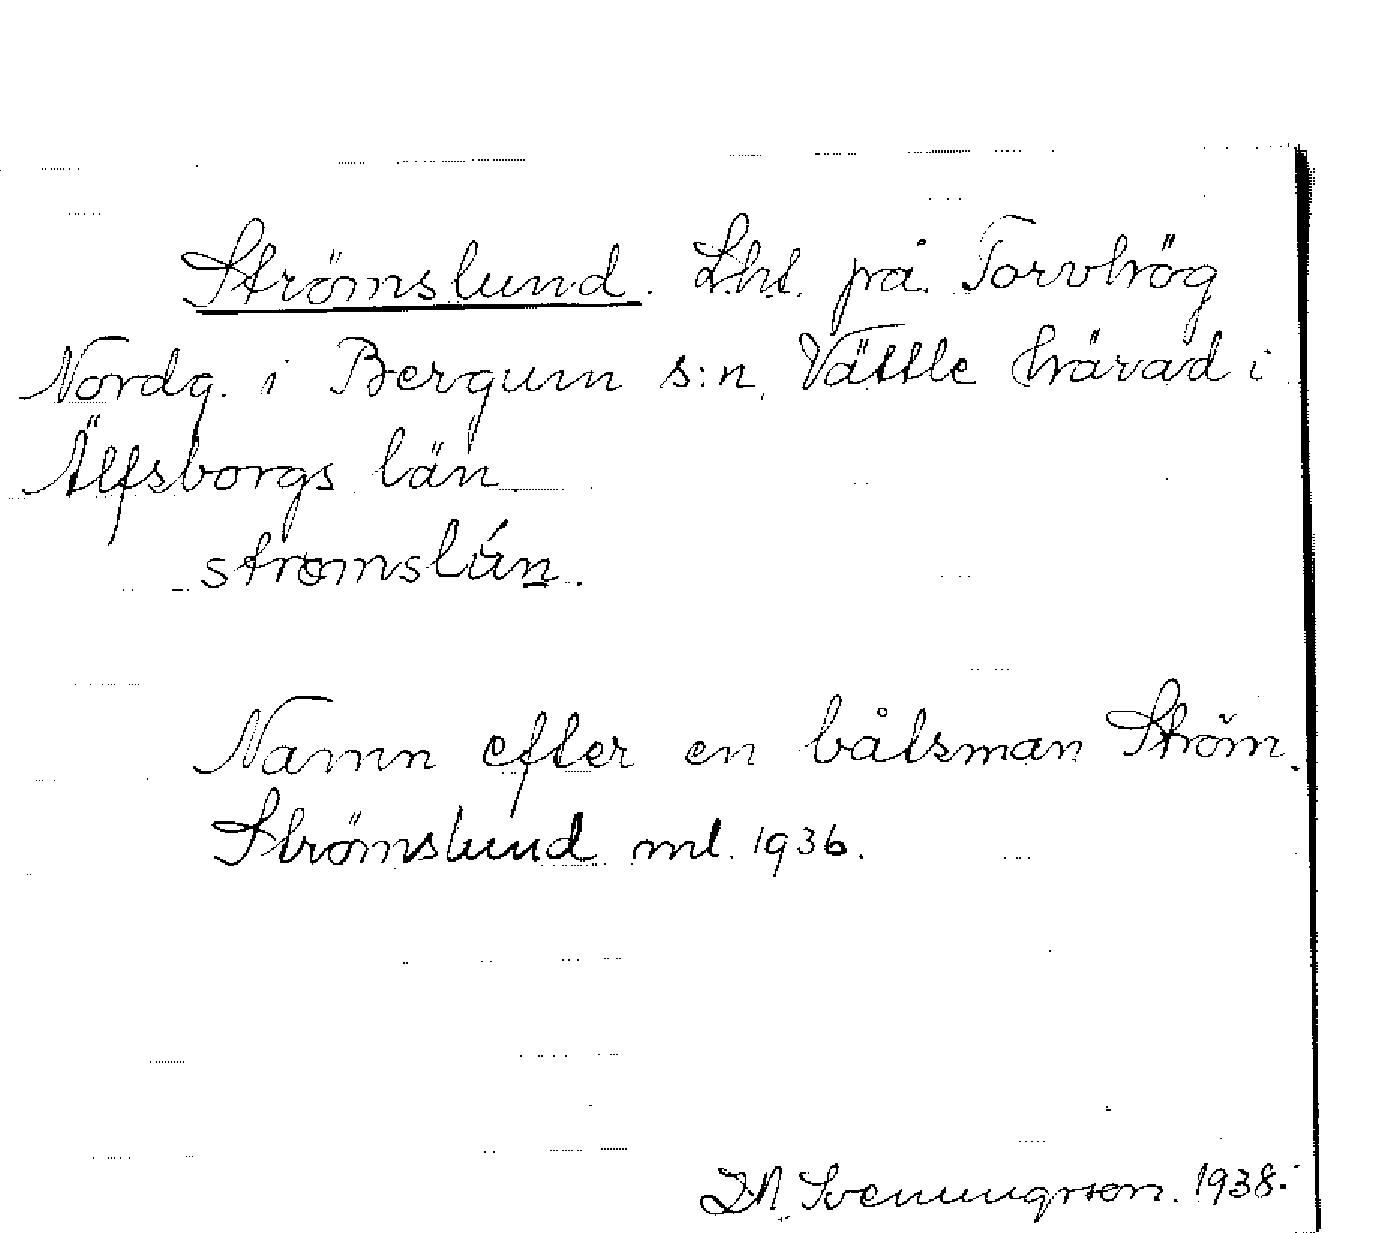 Strömslund. Lht. på Torvhög
Nordg. i Bergum s:n, Vättle härad i
Älfsborgs län
strømslún.
Namn efter en båtsman Ström.
Strömslund ml. 1936.
Svenungsson. 1938.